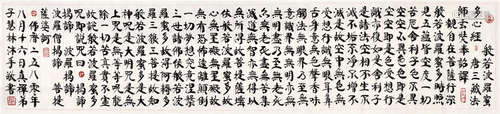 般若波羅蜜
多心經 唐三藏法
師玄奘譯
觀自在菩薩行深
般若波羅蜜多時照
見五蘊皆空度一切
苦厄舍利子色不異
空空不異色色即是
空空即是色受想行識
亦復如是舍利子是諸
法空相不生不滅不垢
不淨不增不減是故空
中無色無受想行識無
眼耳鼻舌身意無色聲
香味觸法無眼界乃至
無意識界無無明亦
無無明盡乃至無老死
亦無老死盡無苦集滅
道無智亦無得以無所
得故菩提薩埵依般若
波羅蜜多故心無罣礙
無罣礙故無有恐怖遠離顛倒
夢想究竟涅槃
三世諸佛依般若波羅蜜多
故得阿耨多羅三藐三菩提
故知般若波羅蜜多是大
神咒是大明咒是無
上咒是無等等咒能
除一切苦真實不虛
故說般若波羅蜜多
咒即說咒曰
揭諦揭諦
波羅揭諦
波羅僧揭諦 菩提
薩婆訶
佛 二五八零年
八月十六日真禪弟
子慧林沐手敬書